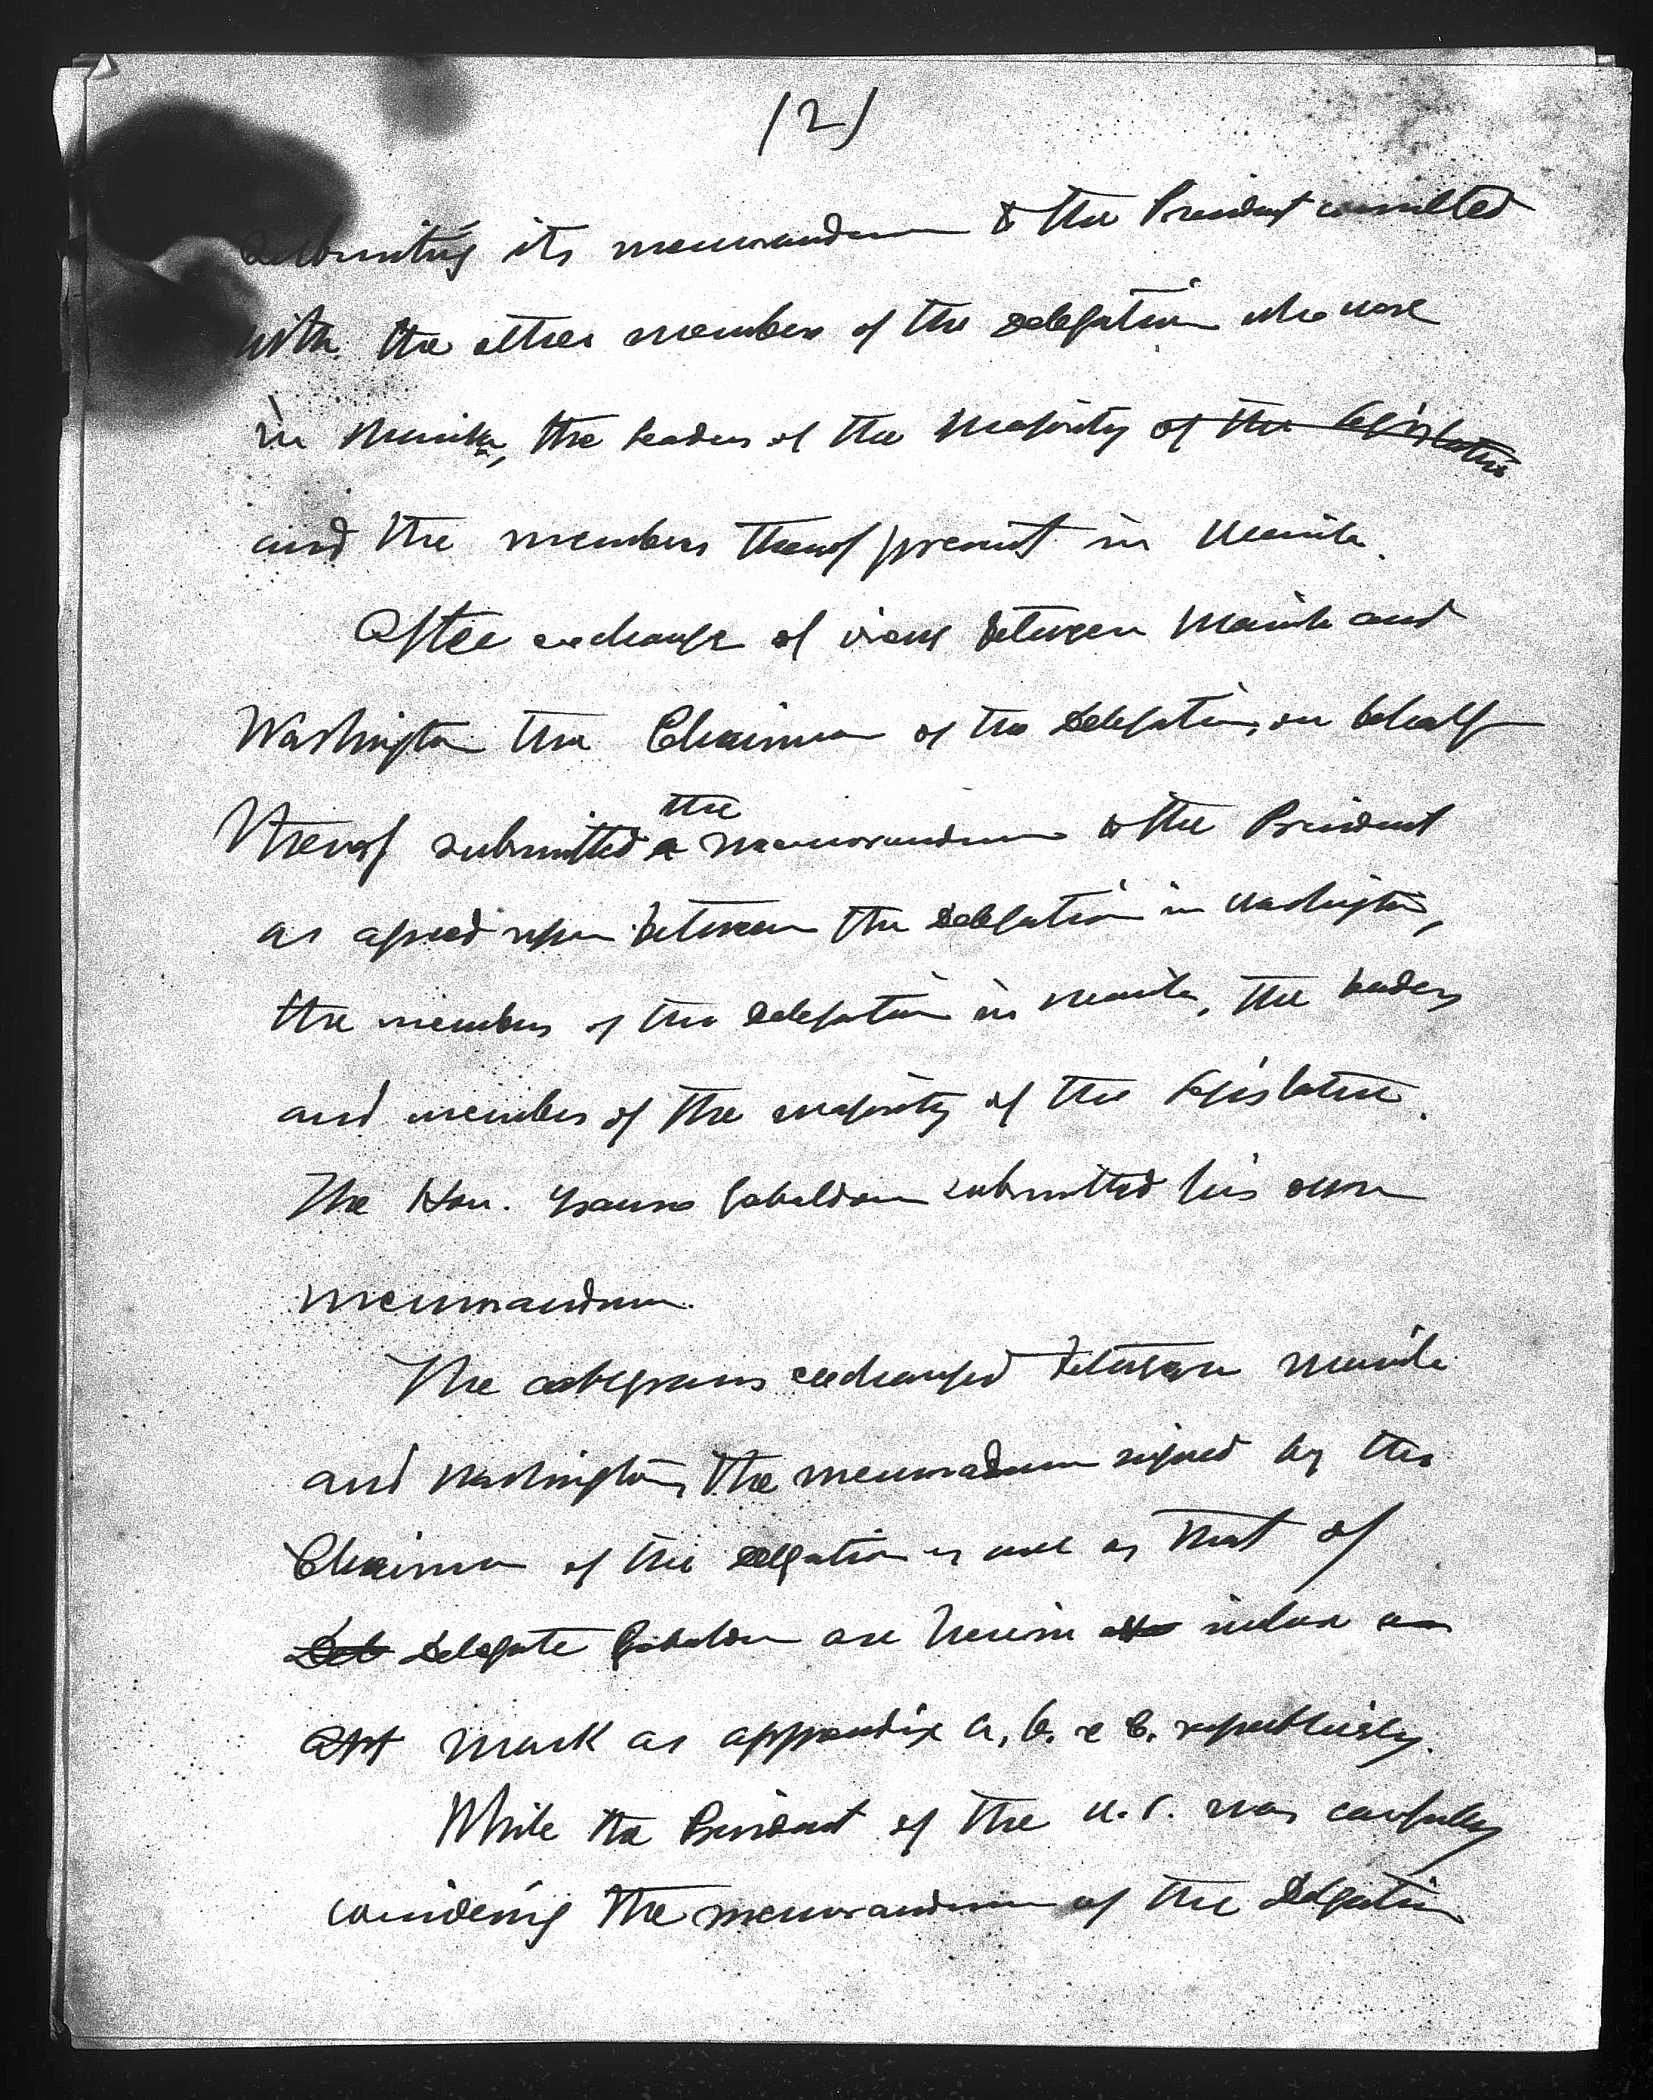 (2)
submitting its memorandum to the President consulted
with the other members of the delegation who were
in Manila, the leaders of the Majority of the Legislature
and the members thereof present in Manila.
After exchange of views between Manila and
Washington the Chairman of the Delegation, on behalf
the
thereof submitted a memorandum to the President
as agreed upon between the Delegation in Washington,
the members of the delegation in Manila, the leaders
and members of the majority of the Legislature.
The Hon. Ysauro Gabaldon submitted his own
memorandum.
The cablegrams exchanged between Manila
and Washington, the memorandum signed by the
Chairman of the Delegation as well as that of
Del Delegate Gabaldon are herein inclose
mark as appendix A, B. & C. respectively.
While the President of the U.S. was carefully
considering the memorandum of the Delegation